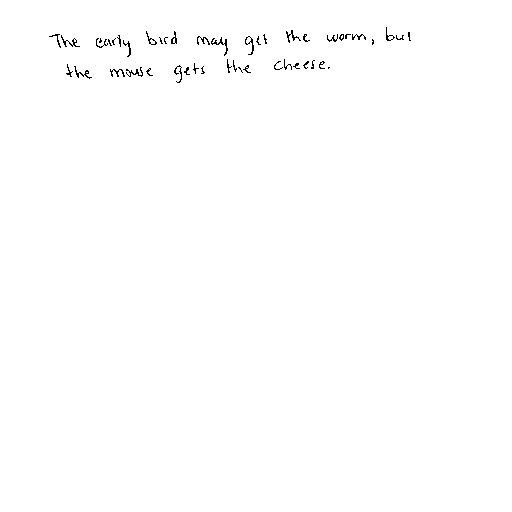 The early bird may get the worm, but
the mouse gets the cheese.